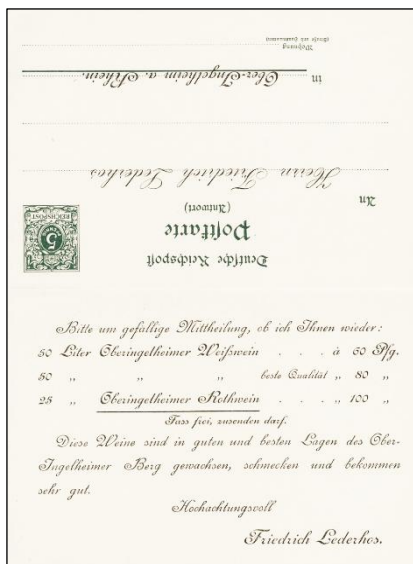 Deutsche Reichspost
Postkarte
(Antwort)
5
REICHSPOST
An
Herrn Friedrich Lederhos
in
Ober-Ingelheim a. Rhein.
Wohnung
(Straße und Hausnummer)
Bitte um gefällige Mittheilung, ob ich Ihnen wieder:
50 Liter Oberingelheimer Weißwein . . . à 60 Pfg.
50 „ „ „ beste Qualität „ 80 „
25 „ Oberingelheimer Rothwein . . . „ 100 „
Fass frei, zusenden darf.
Diese Weine sind in guten und besten Lagen des Ober-
Ingelheimer Berg gewachsen, schmecken und bekommen
sehr gut.
Hochachtungsvoll
Friedrich Lederhos.